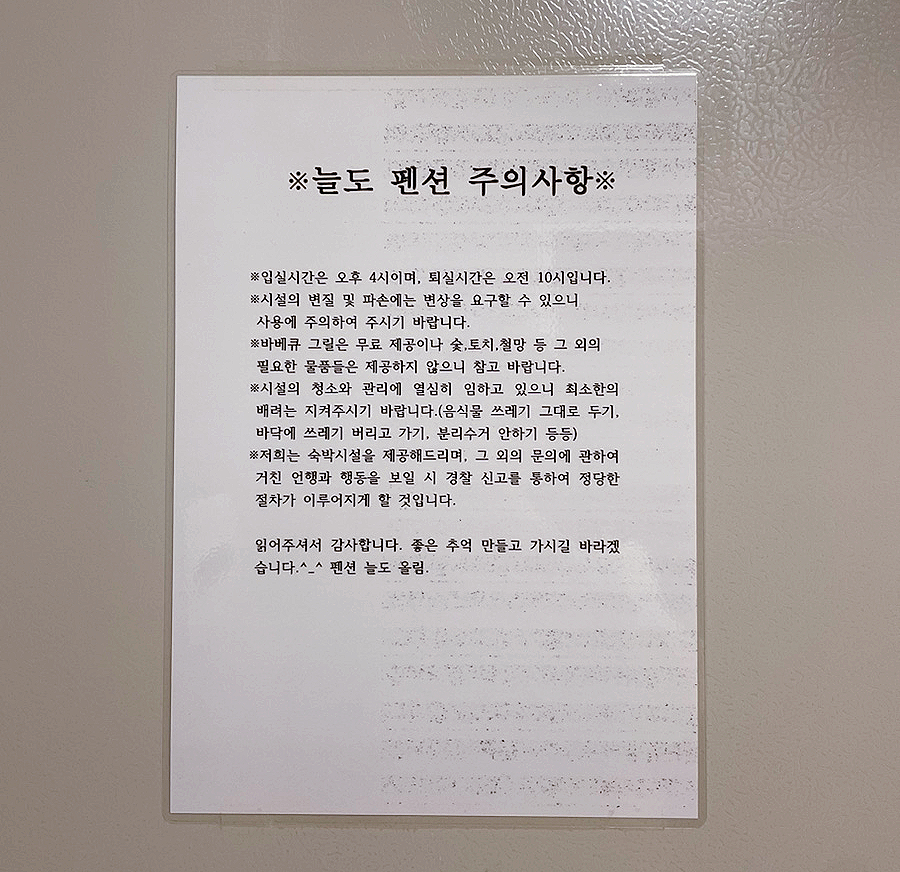 ※늘도 펜션 주의사항※
※입실시간은 오후 4시이며, 퇴실시간은 오전 10시입니다.
※시설의 변질 및 파손에는 변상을 요구할 수 있으니
사용에 주의하여 주시기 바랍니다.
※바베큐 그릴은 무료 제공이나 숯,토치,철망 등 그 외의
필요한 물품들은 제공하지 않으니 참고 바랍니다.
※시설의 청소와 관리에 열심히 임하고 있으니 최소한의
배려는 지켜주시기 바랍니다.(음식물 쓰레기 그대로 두기,
바닥에 쓰레기 버리고 가기, 분리수거 안하기 등등)
※저희는 숙박시설을 제공해드리며, 그 외의 문의에 관하여
거친 언행과 행동을 보일 시 경찰 신고를 통하여 정당한
절차가 이루어지게 할 것입니다.
읽어주셔서 감사합니다. 좋은 추억 만들고 가시길 바라겠
습니다.^_^ 펜션 늘도 올림.